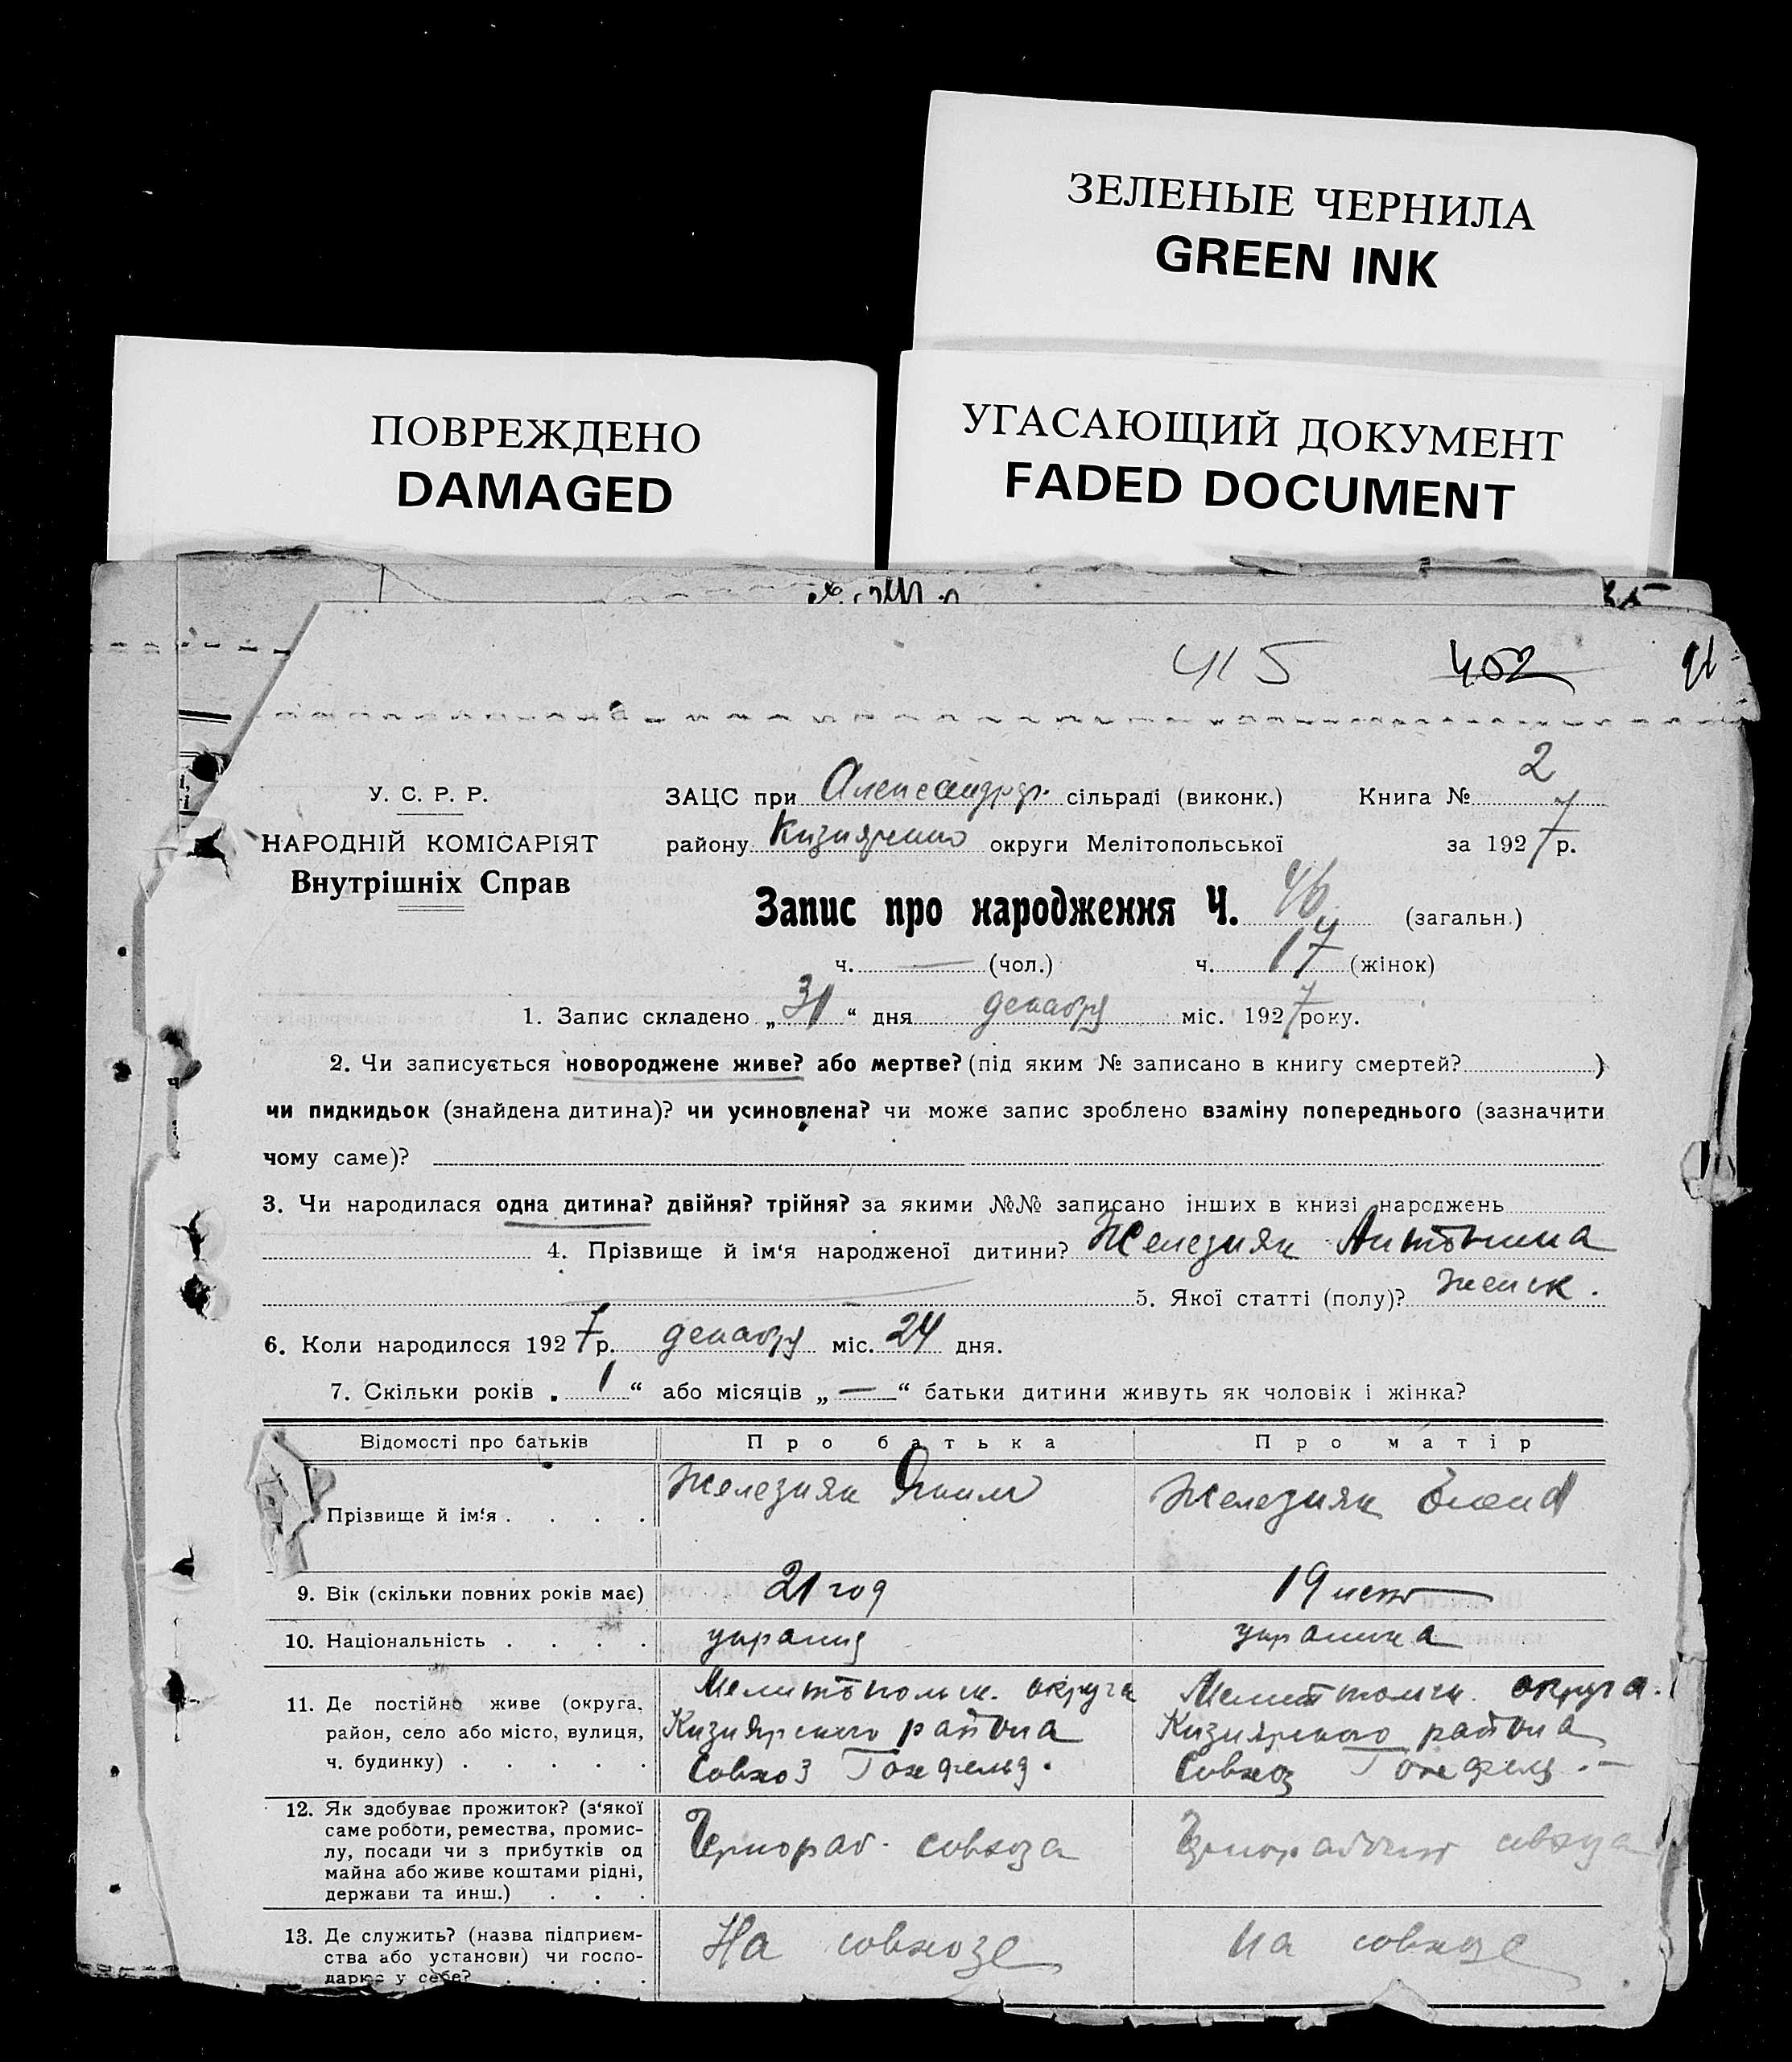 ЗЕЛЕНЫЕ ЧЕРНИЛА
GREEN INK
ПОВРЕЖДЕНО
DAMAGED
УГАСАЮЩИЙ ДОКУМЕНТ
FADED DOCUMENT
415 402
У. С. Р. Р.
НАРОДНІЙ КОМІСАРІЯТ
Внутрішніх Справ
ЗАЦС при Александр. сільраді (виконк.) Книга № 2
району округи Мелітопольської за 1927 р.
Запис про народження Ч. 46 (загальн.)
ч. — (чол.) ч. 17 (жінок)
1. Запис складено „31“ дня декабря міс. 1927 року.
2. Чи записується новороджене живе? або мертве? (під яким № записано в книгу смертей? )
чи пидкидьок (знайдена дитина)? чи усиновлена? чи може запис зроблено взаміну попереднього (зазначити
чому саме)?
3. Чи народилася одна дитина? двійня? трійня? за якими №№ записано інших в книзі народжень
4. Прізвище й ім‘я народженої дитини? Железняк Антонина
5. Якої статті (полу)? женск.
6. Коли народилося 1927 р. декабря міс. 24 дня.
7. Скільки років „1“ або місяців „—“ батьки дитини живуть як чоловік і жінка?
Відомості про батьків Про батька Про матір
Прізвище й ім‘я . . . . Железняк Железняк
9. Вік (скільки повних років має) 21 год 19 лет
10. Національність . . . . украинка
11. Де постійно живе (округа, район, село або місто, вулиця, ч. будинку) . . . . .
Мелитопольск. округа
Кизиярского района
Совхоз
Мелитопольск. округа.
Кизиярского района
Совхоз
12. Як здобуває прожиток? (з‘якої
саме роботи, ремества, промис-
лу, посади чи з прибутків од
майна або живе коштами рідні,
держави та инш.) . . .
Чернораб. совхоза
совхоза
13. Де служить? (назва підприєм-
ства або установи) чи госпо-
дарює у себе? . . . .
На совхозе
на совхозе